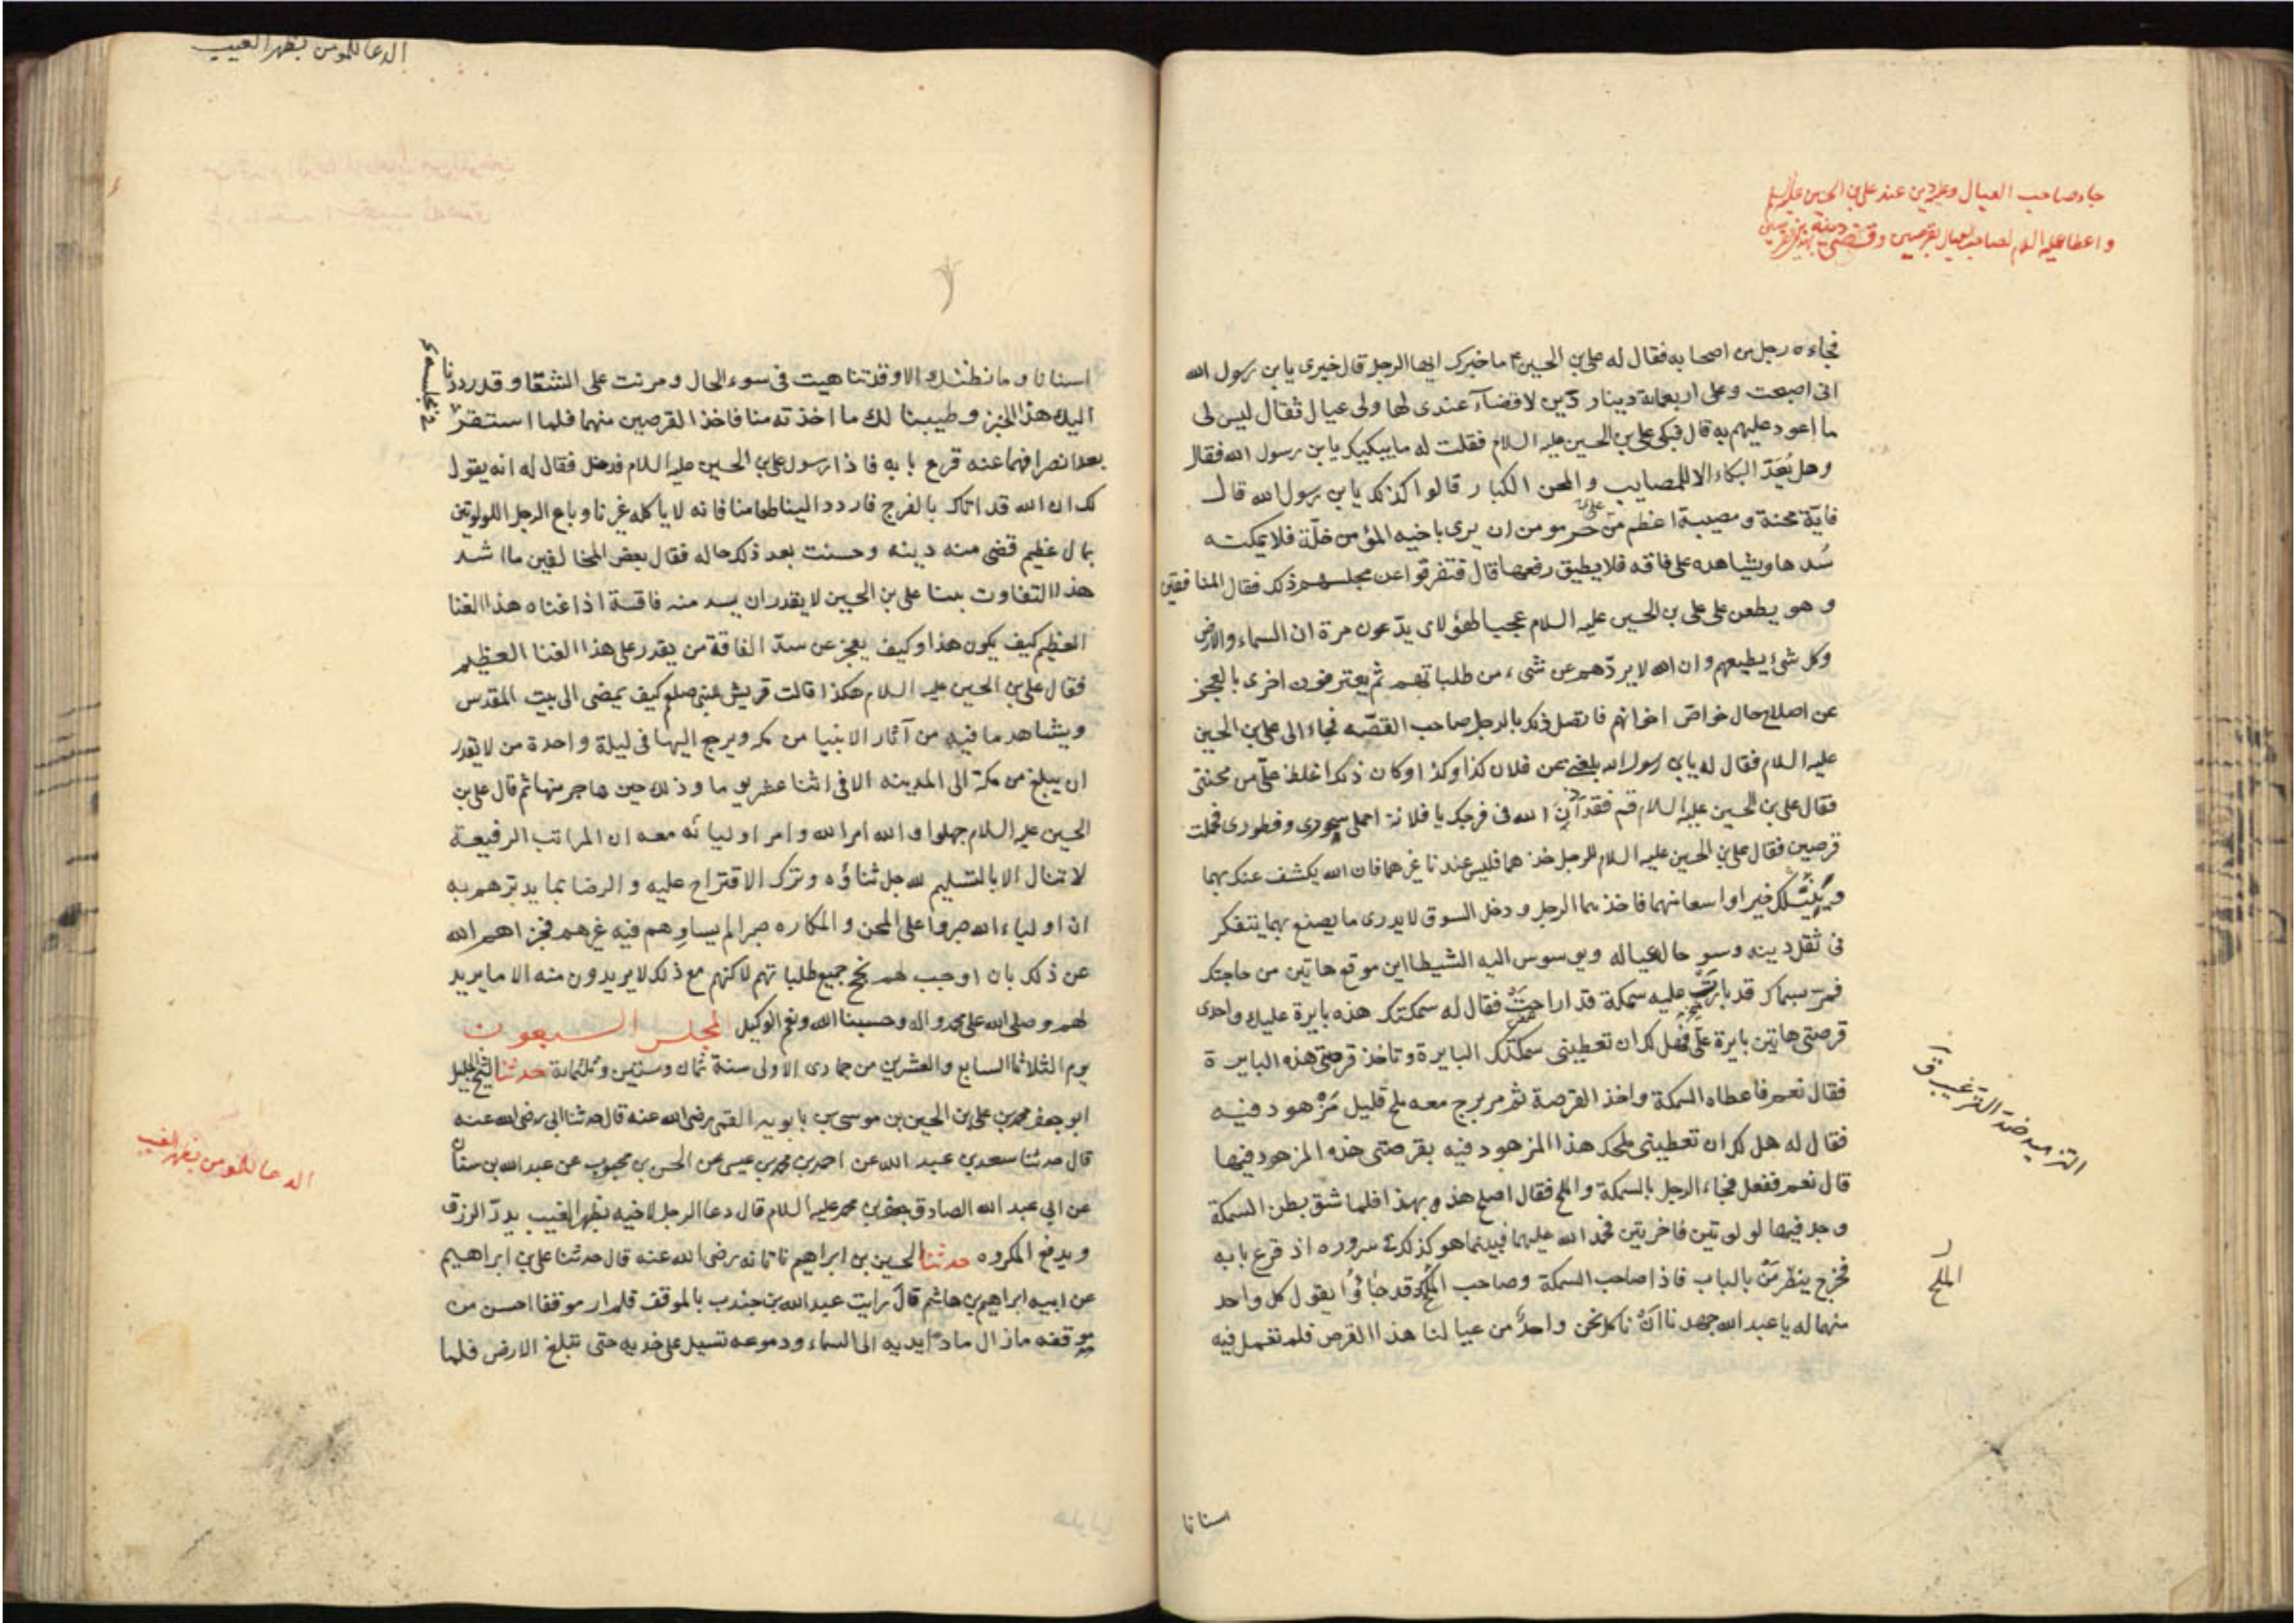 جاء صاحب العيال وعليه دين عند علي بن الحسين عليه السلم
واعطا عليه السلام لصاحب العيال بقرصين وقضى دينه
فجاءه رجل من اصحابه فقال له علي بن الحسين ع ما خبرك ايها الرجل قال خبري يابن رسول الله
اني اصبحت وعلى اربعمائة دينار دين لا قضآء عندي لها ولى عيال ثقال ليس لى
ما اعود عليهم به قال فبكى علي بن الحسين عليه السلام فقلت له ما يبكيك يابن رسول الله فقال
وهل يُعَدّ البكاء الا للمصايب والمحن الكبار قالوا كذلك يابن رسول الله قال
فايّة محنة ومصيبة اعظم على حر مومن من ان يرى باخيه المؤمن خلّة فلا يمكنه
سُدها ويشاهده على فاقه فلا يطيق رفعها قال فتفرقوا عن مجلسهم ذلك فقال المنافقين
وهو يطعن على علي بن الحسين عليه السلام عجبا لهؤلاى يدّعون مرة ان السماء والارض
وكل شئ يطيعهم وان الله لا يردّهم عن شىء من طلباتهم ثم يعترفون اخرى بالعجز
عن اصلاح حال خواصّ اخوانهم فاتصل ذلك بالرجل صاحب القصّه فجاء الى علي بن الحسين
عليه السلام فقال له يابن رسول الله بلغنى عن فلان كذا وكذا وكان ذلك اغلظ علىّ من محنتى
فقال علي بن الحسين عليه السلام قم فقد آذن الله فى فرجك يا فلانة احملى سحورى وفطورى فحملت
قرصين فقال علي بن الحسين عليه السلام للرجل خذهما فليس عندنا غيرهما فان الله يكشف عنك بهما
ويُنيلك خيرا واسعا منهما فاخذهما الرجل ودخل السوق لا يدرى ما يصنع بهما يتفكر
فى ثقل دينه وسو حاله عياله ويوسوس اليه الشيطا اين موقع هاتين من حاجتك
فمرّ بسماك قد بارت عليه سمكة قد اراحت فقال له سمكتك هذه بايرة عليك واحدى
قرصتى هاتين بايرة علىّ فهل لك ان تعطينى سمكتك البايرة وتاخذ قرصتى هذه البايرة
فقال نعم فاعطاه السمكة واخذ القرصة ثم مر برج معه ملح قليل مَزْهود فيه
فقال له هل لك ان تعطينى ملحك هذا المزهود فيه بقرصتى هذه المزهود فيها
قال نعم ففعل فجاء الرجل بالسمكة والملح فقال اصلح هذه بهذا فلما شق بطن السمكة
وجد فيها لولوتين فاخرتين فحمد الله عليهما فبينما هو كذلك فى سروره اذ قرع بابه
فخرج ينظر مَنْ بالباب فاذا صاحب السمكة وصاحب الملح قد جاؤا يقول كل واحد
منهما له يا عبد الله جهدنا ان ناكل نحن واحد من عيالنا هذا القرص فلم تعمل فيه
التزهيد ضد الترغيب ق
الملح
اسنانا
الدعا للمومن بظهر الغيب
اسنانا وما نظنك الا وقد تناهيت فى سوء الحال ومرنت على الشقا وقد رددنا
اليك هذا الخبز وطيبنا لك ما اخذته منا فاخذ القرصين منهما فلما استقر
بعد انصرافهما عنه قرع بابه فاذا رسول علي بن الحسين عليه السلام فدخل فقال له انه يقول
لك ان الله قد اتاك بالفرج فاردد الينا طعامنا فانه لا ياكله غيرنا وباع الرجل اللولوتين
بمال عظيم قضى منه دينه وحسنت بعد ذلك حاله فقال بعض المخالفين ما اشد
هذا التفاوت بينا علي بن الحسين لا يقدر ان يسد منه فاقة اذ اغناه هذا الغنا
العظيم كيف يكون هذا وكيف يعجز عن سدّ الفاقة من يقدر على هذا الغنا العظيم
فقال علي بن الحسين عليه السلام هكذا قالت قريش للنبى صلعم كيف يمضى الى بيت المقدس
ويشاهد ما فيه من آثار الانبيا من مكه ويرجع اليها فى ليلة واحدة من لا يقدر
ان يبلغ من مكة الى المدينه الا فى اثنا عشر يوما وذلك حين هاجر منها ثم قال علي بن
الحسين عليه السلام جهلوا والله امر الله وامر اوليائه معه ان المراتب الرفيعة
لا تنال الا بالتسليم لله جل ثناؤه وترك الاقتراح عليه والرضا بما يدبرهم به
ان اولياء الله صبروا على المحن والمكاره صبرا لم يساوِهم فيه غيرهم فجزاهم الله
عن ذلك بان اوجب لهم نجح جميع طلباتهم لاكنهم مع ذلك لا يريدون منه الا ما يريد
لهم وصلى الله على محمد واله وحسبنا الله ونعم الوكيل المجلس السبعون
يوم الثلاثا السابع والعشرين من جمادى الاولى سنة ثمان وستين وثلثمائة حدثنا الشيخ الجليل
ابو جعفر محمد بن علي بن الحسين بن موسى بن بابويه القمى رضى الله عنه قال حدثنا ابى رضى الله عنه
قال حدثنا سعد بن عبد الله عن احمد بن محمد بن عيسى عن الحسن بن محبوب عن عبد الله بن سنان
عن ابى عبد الله الصادق جعفر بن محمد عليه السلام قال دعا الرجل لاخيه بظهر الغيب يدرّ الرزق
ويدفع المكروه حدثنا الحسين بن ابراهيم ناتانه رضى الله عنه قال حدثنا علي بن ابراهيم
عن ابيه ابراهيم بن هاشم قال رايت عبد الله بن جندب بالموقف فلم ار موقفا احسن من
موقفه ما زال مادا يديه الى السماء ودموعه تسيل على خديه حتى تبلغ الارض فلما
الدعا للمومن بظهر الغيب